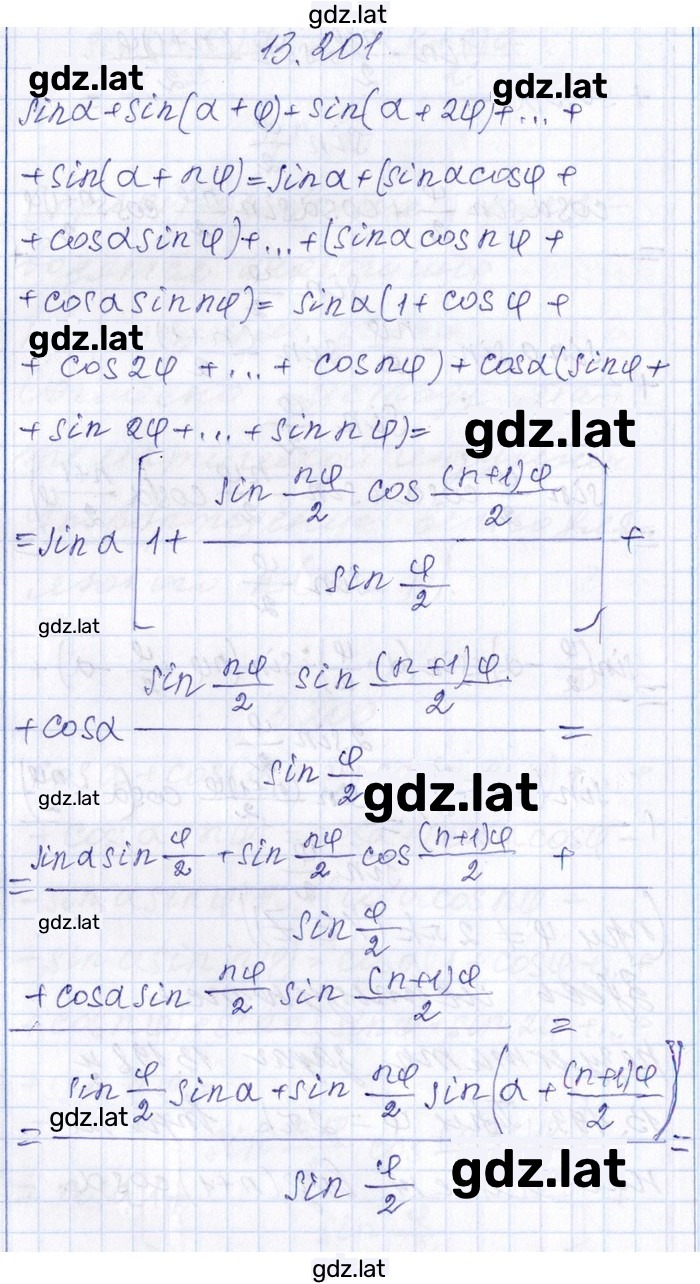 gdz.lat
13.201
gdz.lat
gdz.lat
sinα+sin(α+φ)+sin(α+2φ)+...+
+sin(α+nφ)=sinα+(sinαcosφ+
+cosαsinφ)+...+(sinαcosnφ+
+cosαsinnφ)= sinα(1+cosφ+
gdz.lat
+cos2φ+...+cosnφ)+cosα(sinφ+
+sin2φ+...+sinnφ)=
gdz.lat
=sinα[1+ (sin nφ/2 cos (n+1)φ/2)/(sin φ/2)]+
gdz.lat
+cosα (sin nφ/2 sin (n+1)φ/2)/(sin φ/2) =
gdz.lat
gdz.lat
= (sinαsin φ/2 + sin nφ/2 cos (n+1)φ/2 +)/(sin φ/2)
gdz.lat
+cosαsin nφ/2 sin (n+1)φ/2 =
= (sin φ/2 sinα+sin nφ/2 sin(α+(n+1)φ/2))/(sin φ/2) =
gdz.lat
gdz.lat
gdz.lat